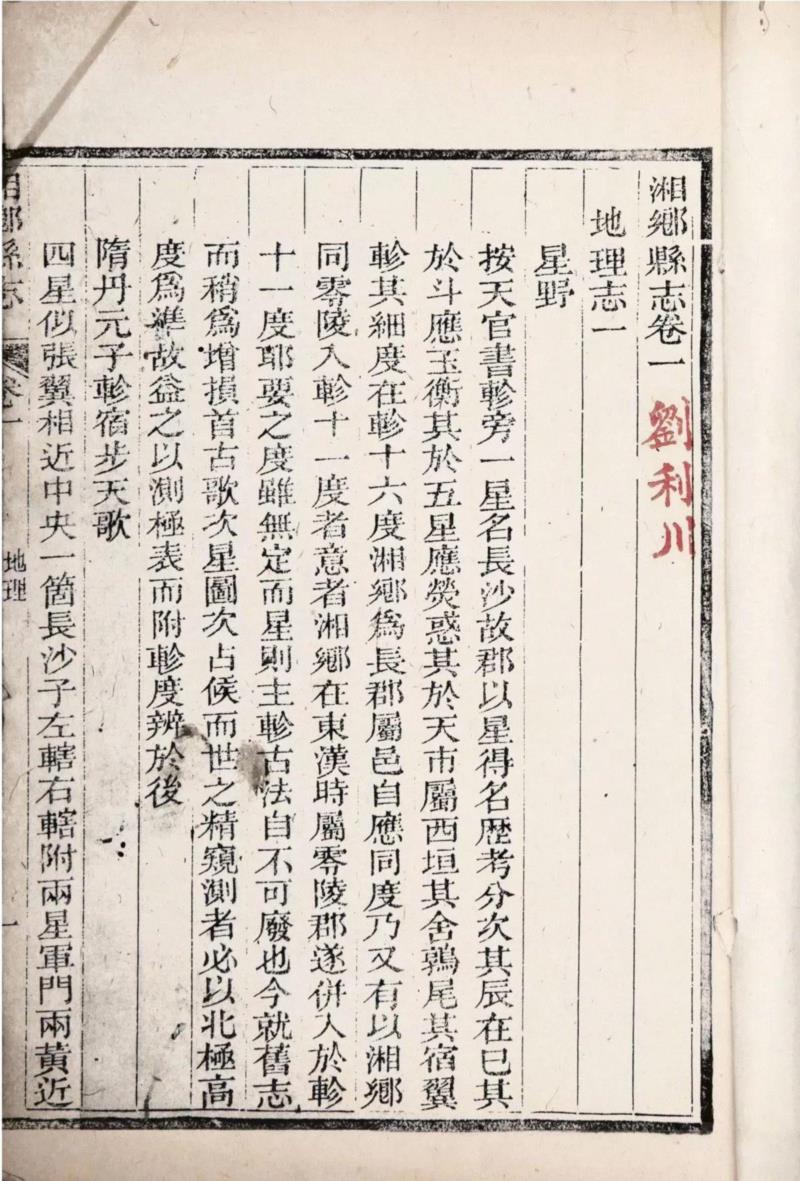 湘鄉縣志卷一
劉利川
地理志一
星野
按天官書軫旁一星名長沙故郡以星得名歷考分次其辰在巳其
於斗應玉衡其於五星應熒惑其於天市屬西垣其舍鶉尾其宿翼
軫其細度在軫十六度湘鄉爲長郡屬邑自應同度乃又有以湘鄉
同零陵入軫十一度者意者湘鄉在東漢時屬零陵郡遂併入於軫
十一度耶要之度雖無定而星則主軫古法自不可廢也今就舊志
而稍爲增損首古歌次星圖次占候而世之精窺測者必以北極高
度爲準故益之以測極表而附軫度辨於後
隋丹元子軫宿步天歌
四星似張翼相近中央一箇長沙子左轄右轄附兩星軍門兩黃近
湘鄉縣志
卷一
地理
一